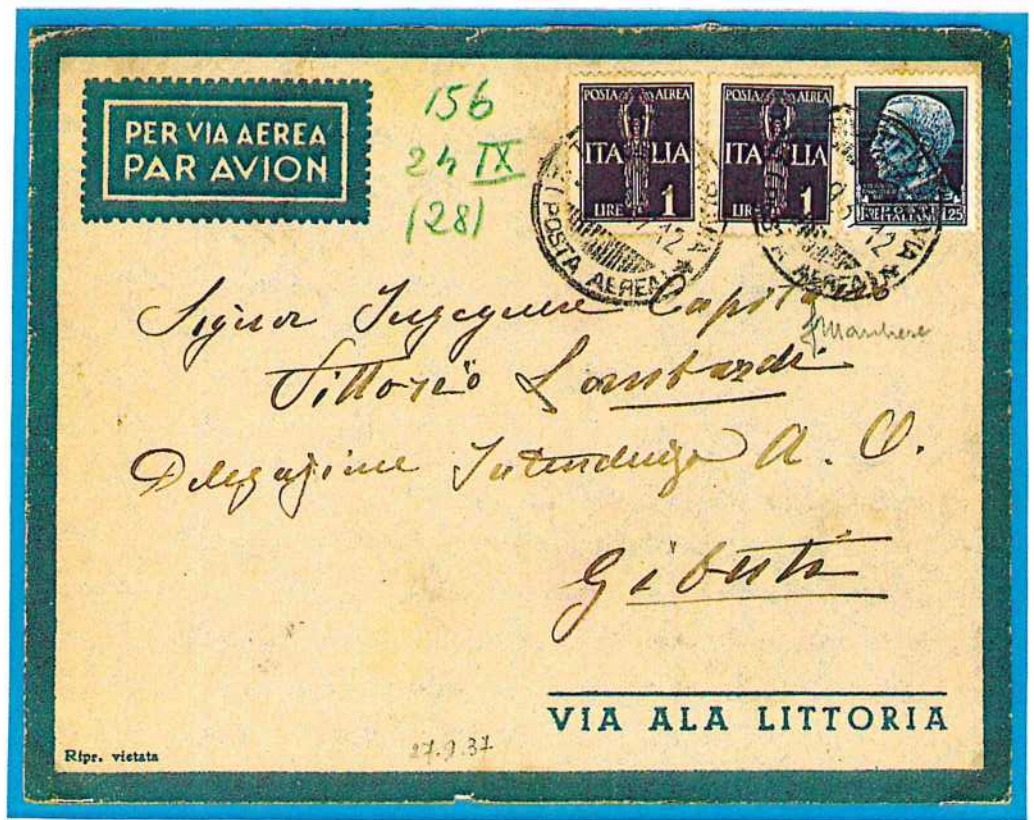 PER VIA AEREA
PAR AVION
156
24 IX
(28)
POSTA AEREA
ITALIA
LIRE 1
POSTA AEREA
ITALIA
LIRE 1
LIRE POSTE ITALIANE 1,25
POSTA AEREA
12
12
Signor Ingegnere Capitano
Marchese
Vittorio Lombardi
Delegazione Intendenza A. O.
Gibuti
VIA ALA LITTORIA
Ripr. vietata
27.9.37